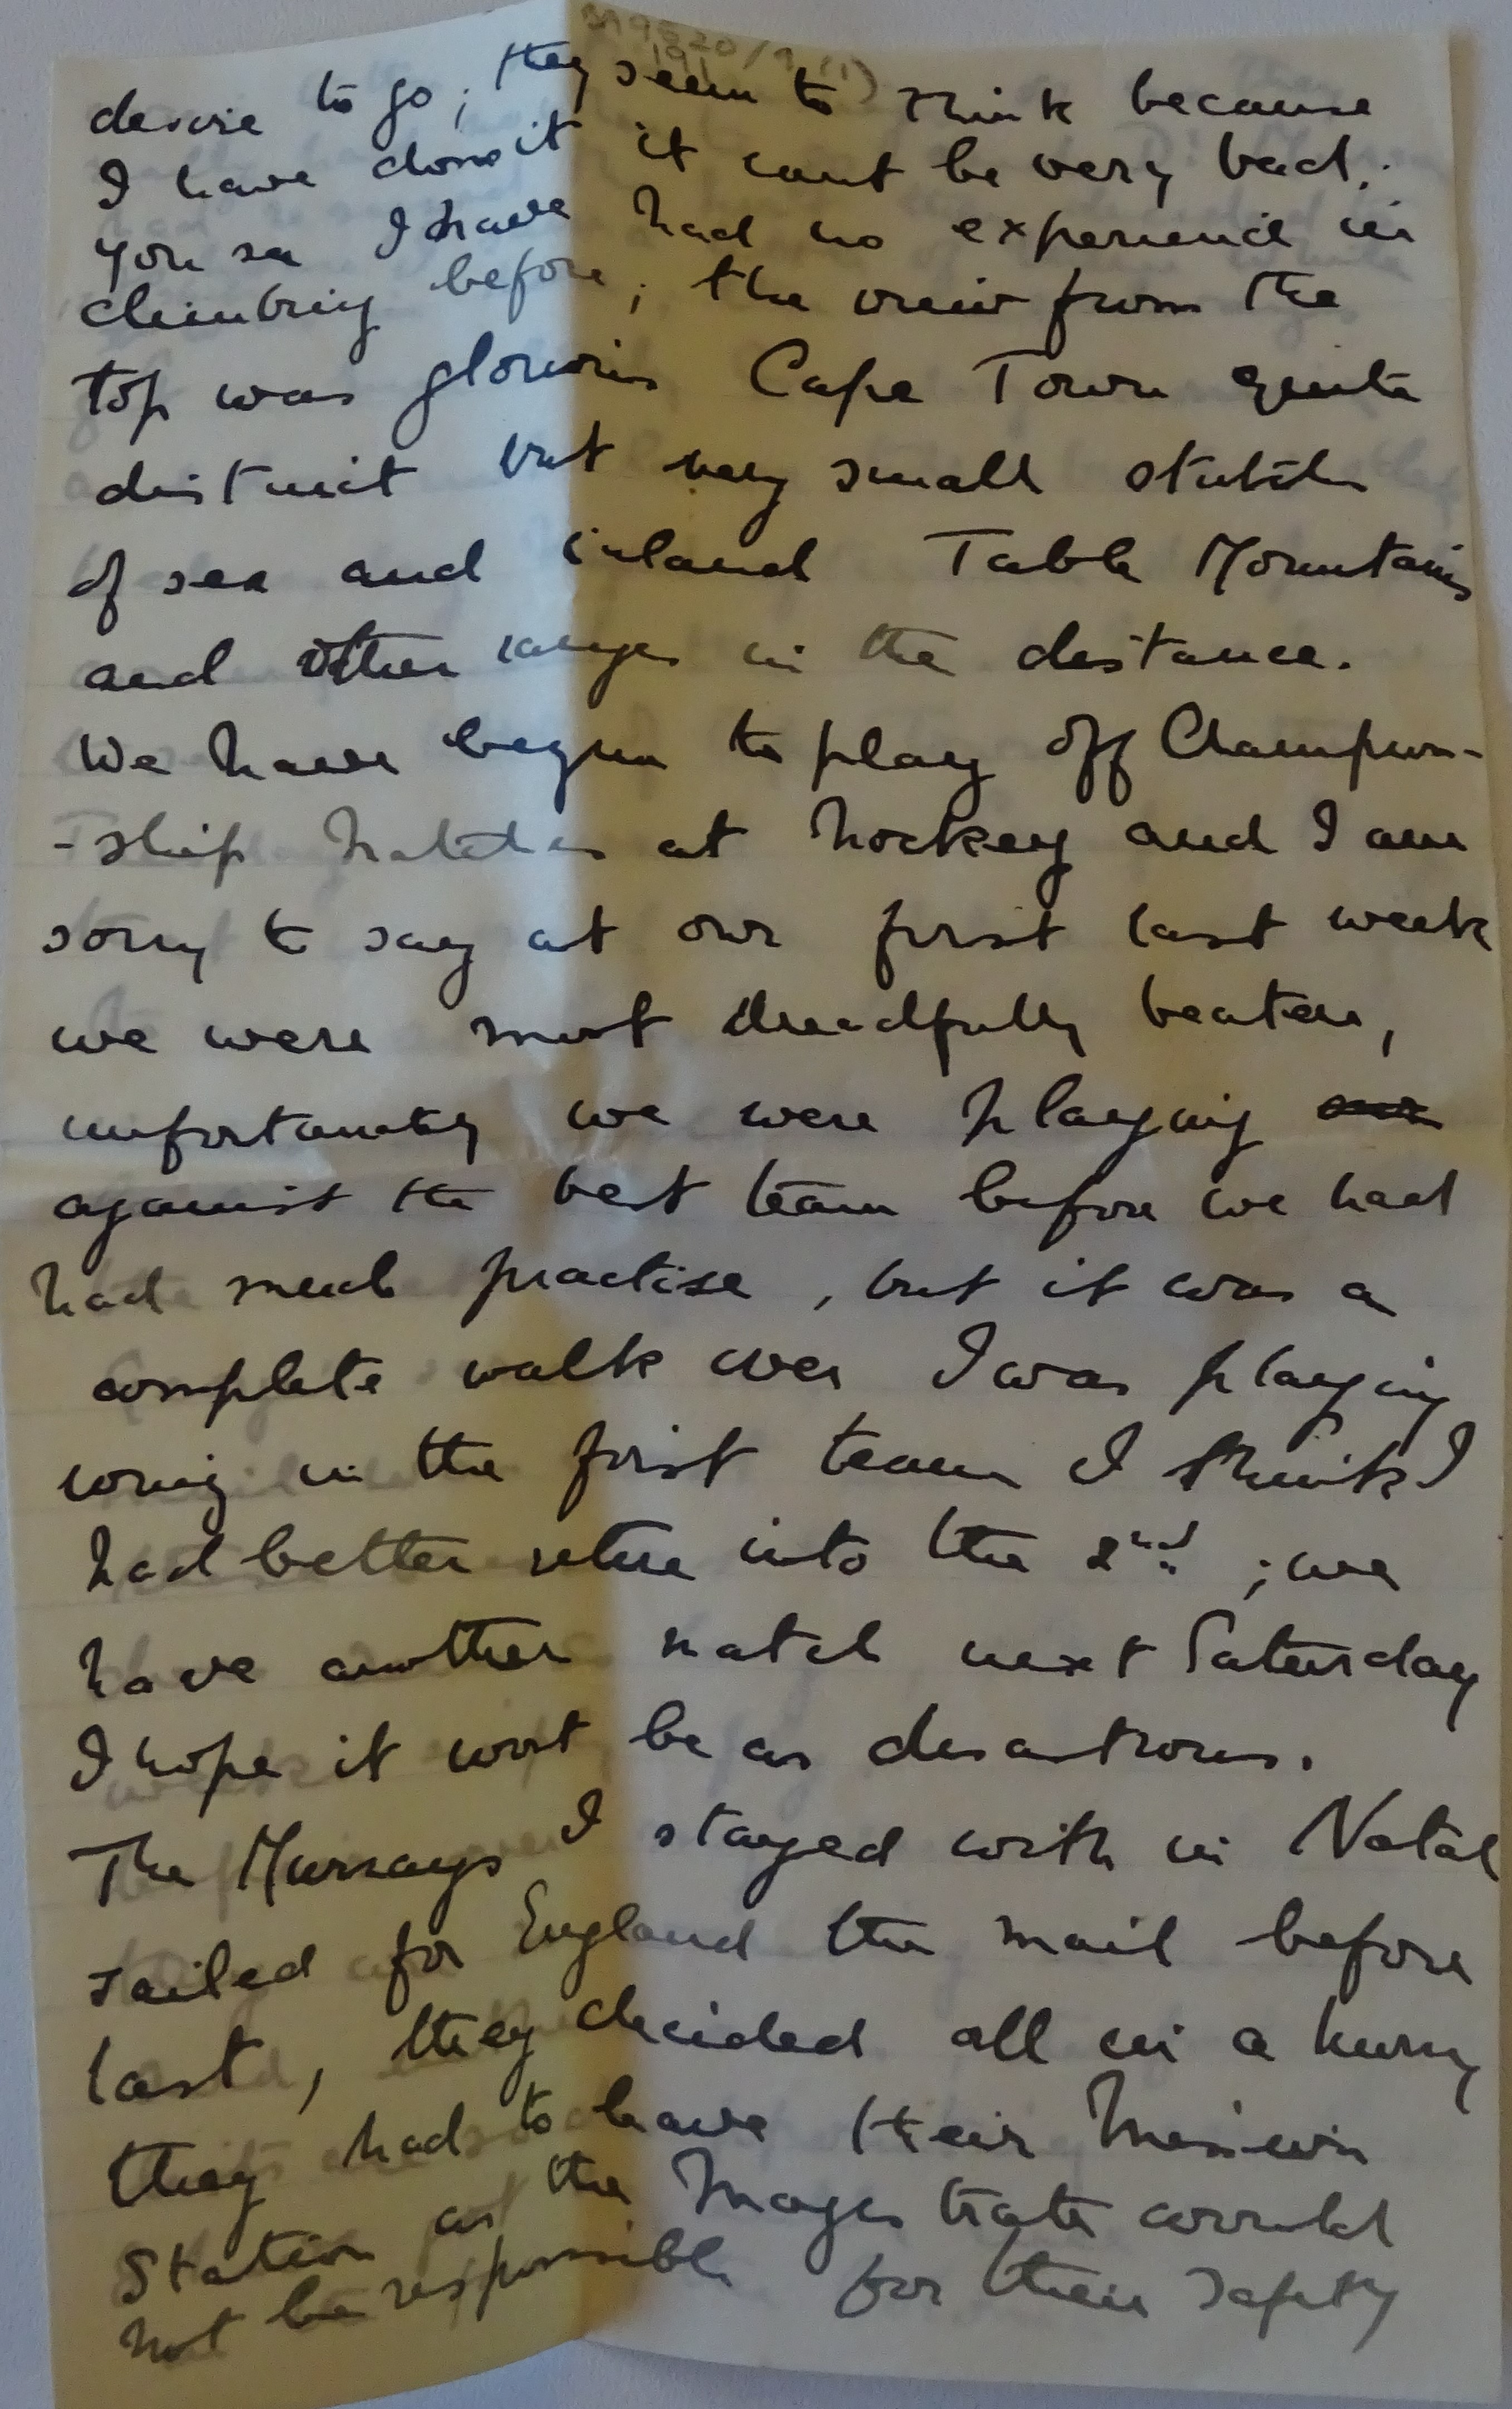 desire to go; they seem to think because
I have done it it cant be very bad,
you see I have had no experience in
climbing before; the view from the
top was glorious Cape Town quite
distinct but very small stretches
of sea and inland Table Mountains
and other ranges in the distance.
We have begun to play off Champion-
-ship matches at hockey and I am
sorry to say at our first last week
we were most dreadfully beaten,
unfortunately we were playing
against the best team before we had
had much practise, but it was a
complete walk over I was playing
wing in the first team I think I
had better retire into the 2nd; we
have another match next Saturday
I hope it wont be as disastrous.
The Murrays I stayed with in Natal
sailed for England the mail before
last, they decided all in a hurry
they had to leave their Mission
Station as the Magistrate would
not be responsible for their safety